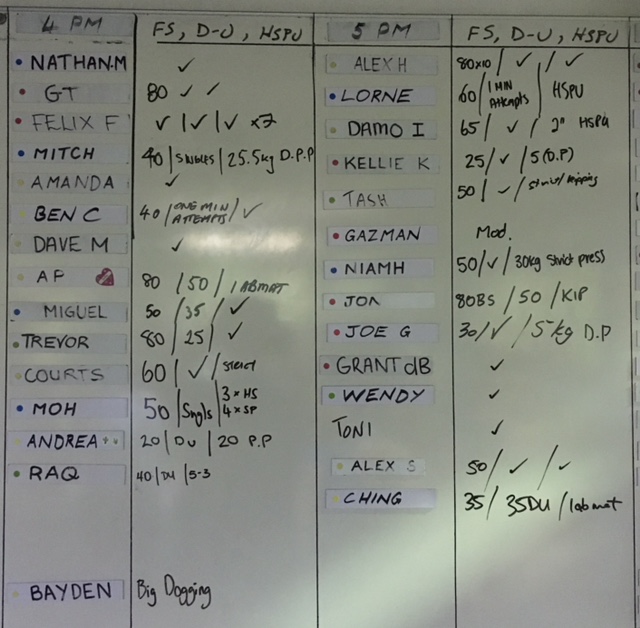 4 PM FS, D-U, HSPU
NATHAN.M ✓
GT 80 ✓ ✓
FELIX F ✓ / ✓ / ✓ x7
MITCH 40 / SINGLES / 25.5kg D.P.P
AMANDA ✓
BEN C 40 / ONE MIN ATTEMPTS / ✓
DAVE M ✓
AP 80 / 50 / 1 ABMAT
MIGUEL 50 / 35 / ✓
TREVOR 80 / 25 / ✓
COURTS 60 / ✓ / STRICT
MOH 50 / Sngls / 3 x HS 4 x SP
ANDREA 20 / DU / 20 P.P
RAQ 40 / DU / 5-3
BAYDEN Big Dogging
5 PM FS, D-U, HSPU
ALEX H 80x10 / ✓ / ✓
LORNE 60 / 1 MIN Attempts / HSPU
DAMO I 65 / ✓ / 2" HSPU
KELLIE K 25 / ✓ / 5 (D.P)
TASH 50 / ✓ / strict/kipping
GAZMAN Mod.
NIAMH 50 / ✓ / 30kg strict press
JON 80BS / 50 / KIP
JOE G 30 / ✓ / 5kg D.P
GRANT dB ✓
WENDY ✓
TONI ✓
ALEX S 50 / ✓ / ✓
CHING 35 / 35DU / 1abmat